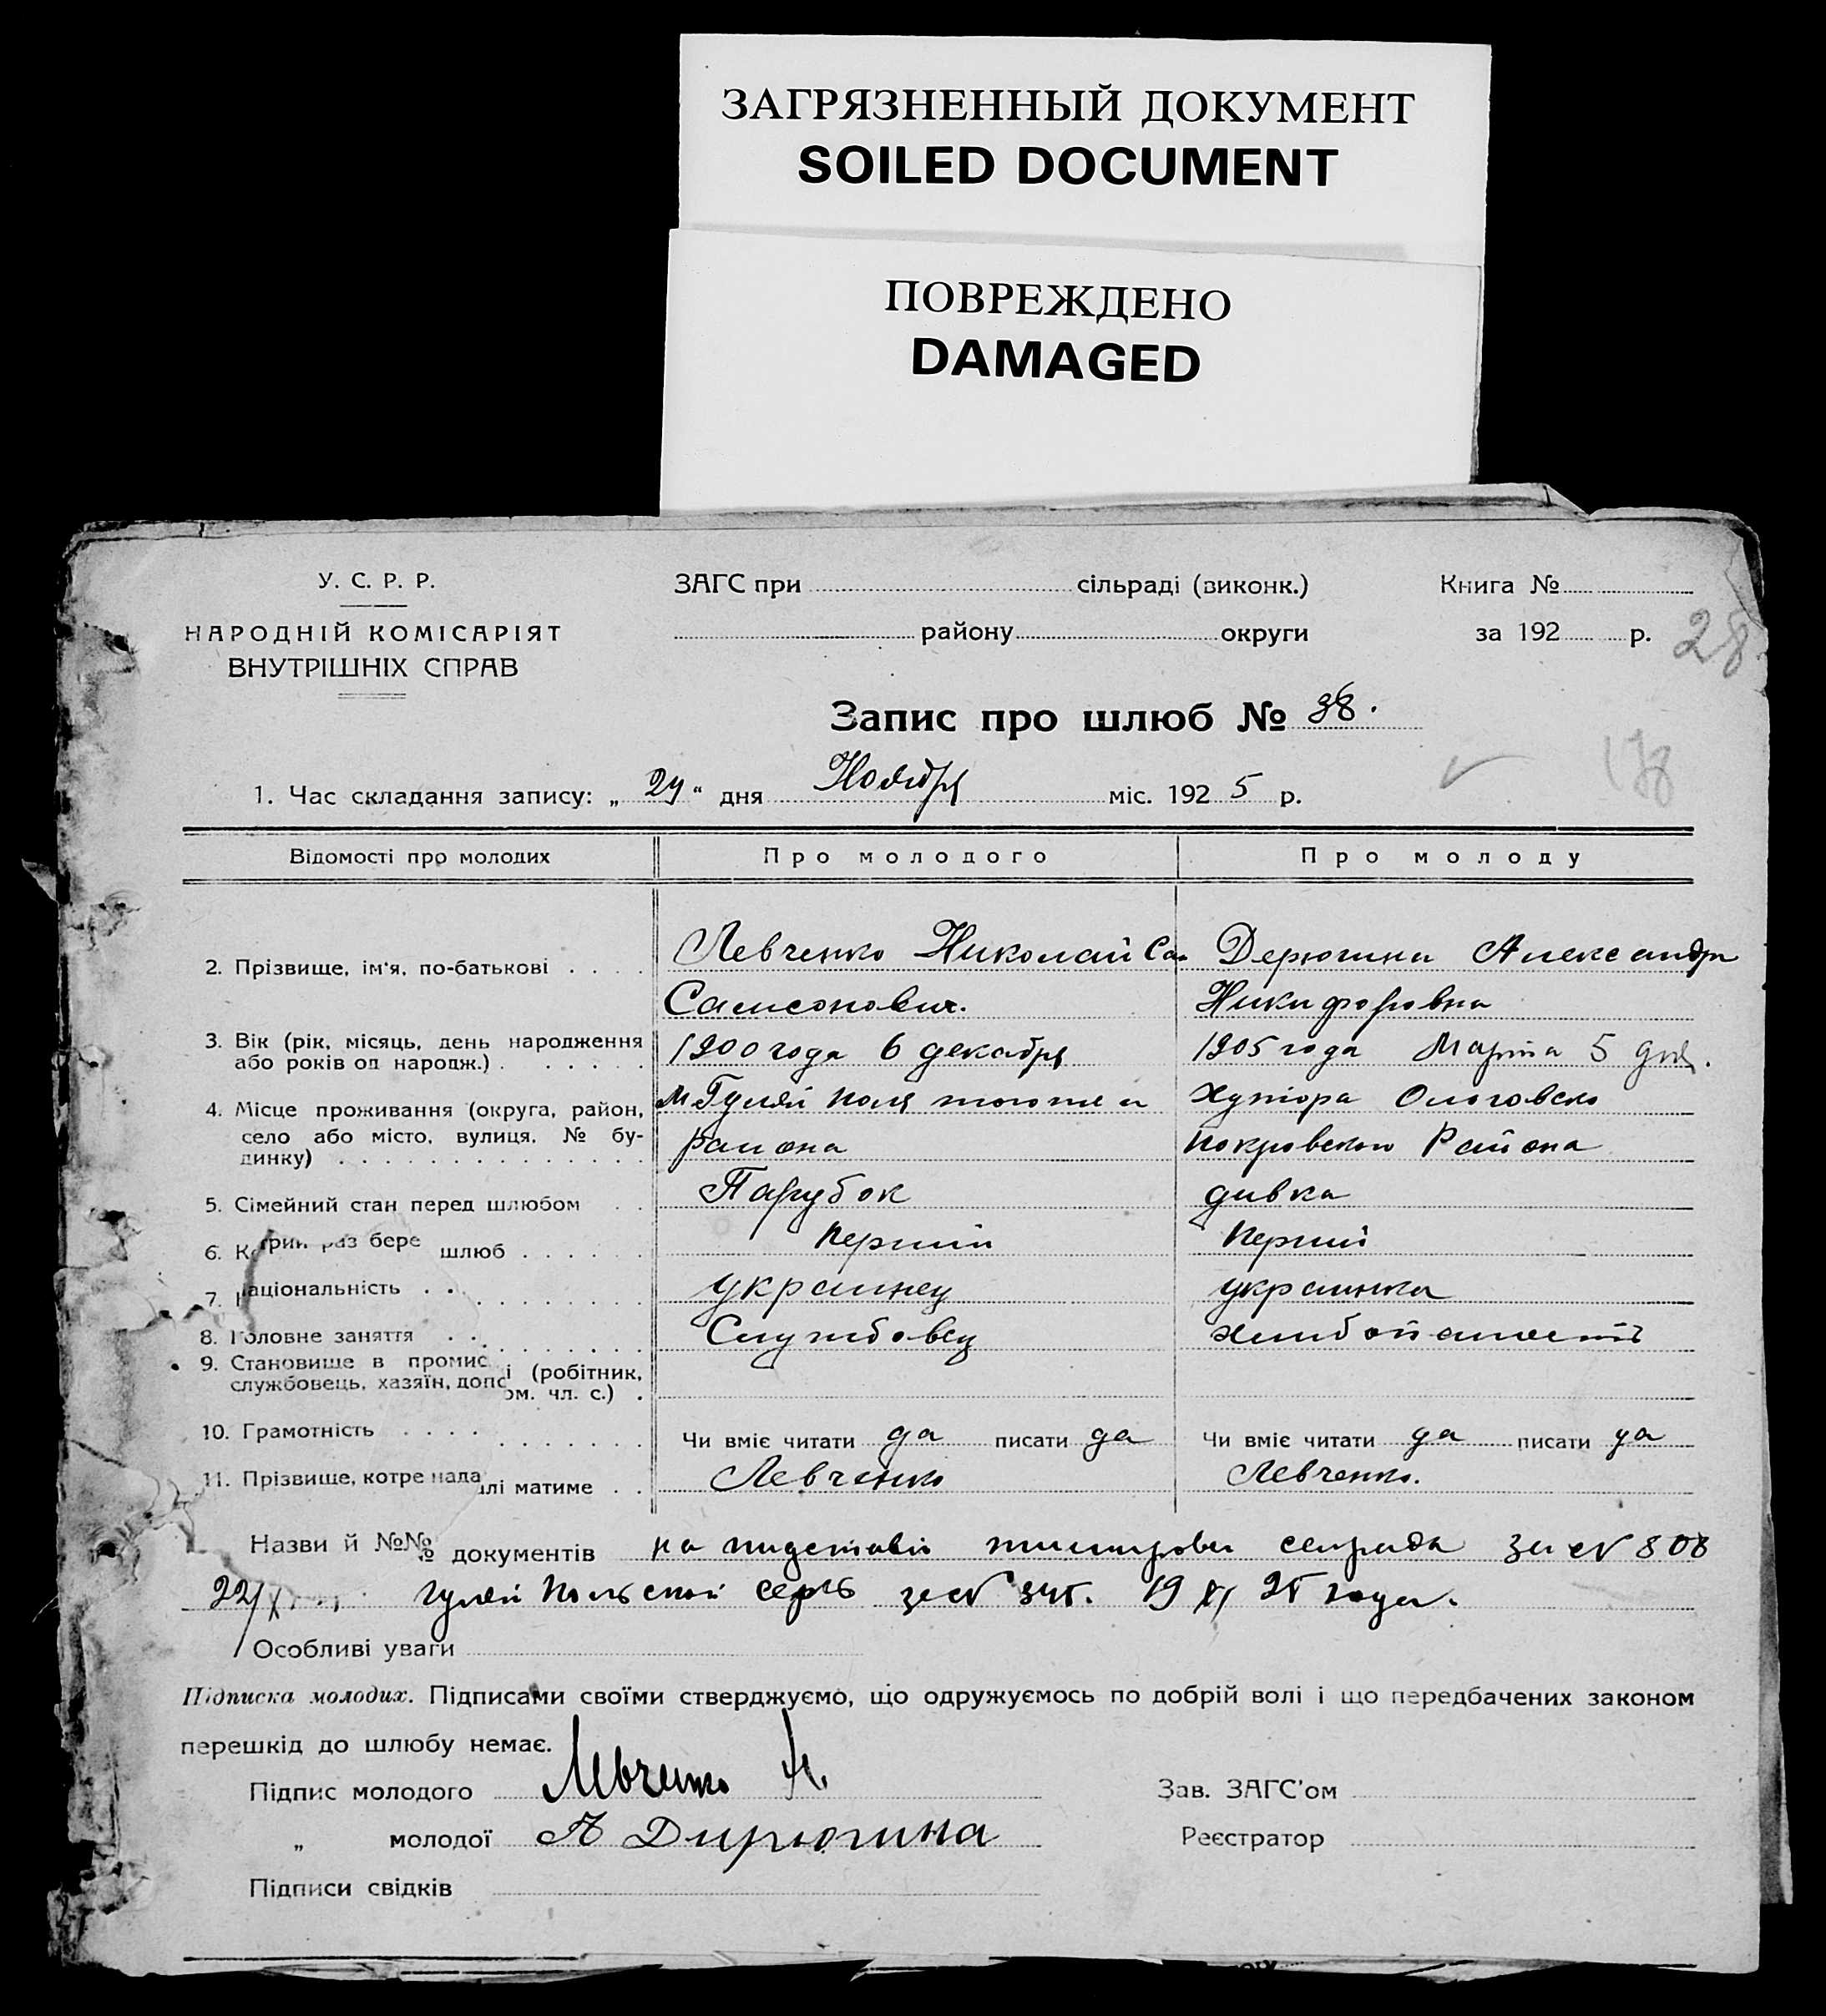 ЗАГРЯЗНЕННЫЙ ДОКУМЕНТ
SOILED DOCUMENT
ПОВРЕЖДЕНО
DAMAGED
У. С. Р. Р.
НАРОДНІЙ КОМІСАРІЯТ
ВНУТРІШНІХ СПРАВ
ЗАГС при сільраді (виконк.)
району округи
Книга №
за 192 р.
28
Запис про шлюб № 38.
138
1. Час складання запису: „ 24 “ дня Ноября міс. 192 5 р.
Відомості про молодих Про молодого Про молоду
2. Прізвище, ім'я, по-батькові . . . . Левченко Николай Са- Дерюгина Александра
Самсонович. Никифоровна
3. Вік (рік, місяць, день народження 1900 года 6 декабря 1905 года Марта 5 дня.
або років од народж.) . . . . . .
4. Місце проживання (округа, район, м Гуляй Поля того же Хутора
село або місто, вулиця, № бу- района Покровского Района
динку) . . . . . . . . . . . . .
5. Сімейний стан перед шлюбом . . Парубок дивка
6. Котрий раз бере шлюб . . . . . Перший Перший
7. Національність . . украинец украинка
8. Головне заняття . . Службовец
9. Становище в промис і (робітник,
службовець, хазяїн, допом. чл. с.) .
10. Грамотність . . . . Чи вміє читати да писати да Чи вміє читати да писати да
11. Прізвище, котре надалі матиме . . Левченко Левченко.
Назви й №№ документів на пидставі сельрада за № 808
22/ Гуляй Польской за № 345. 19 XI 25 года.
Особливі уваги
Підписка молодих. Підписами своїми стверджуємо, що одружуємось по добрій волі і що передбачених законом
перешкід до шлюбу немає.
Підпис молодого Левченко Н.
Зав. ЗАГС'ом
„ молодої А Дирюгина
Реєстратор
Підписи свідків